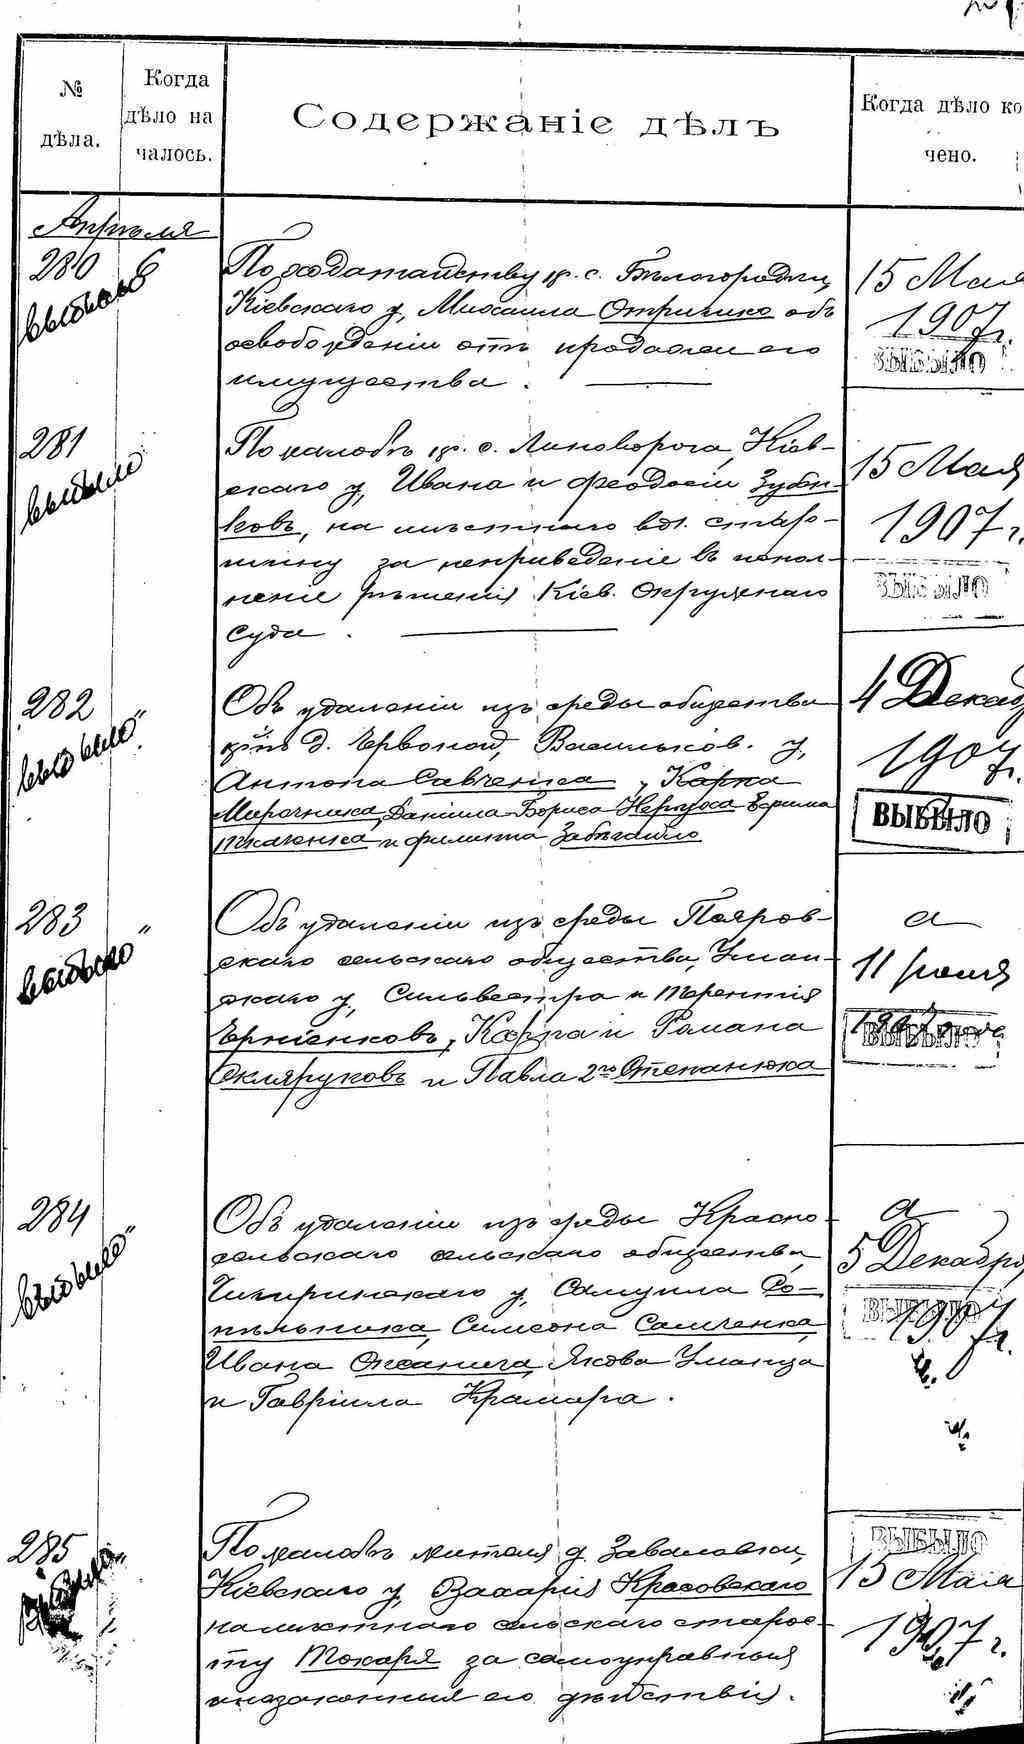 № дѣла.
Когда дѣло на чалось.
Содержаніе дѣлъ
Когда дѣло ко чено.
Апрѣля
280 6
выбыло
По ходатайству кр. с. Бѣлогородки,
Кіевскаго у, Михаила Отричко объ
освобожденіи отъ продажи его
имущества.
15 Мая
1907 г.
ВЫБЫЛО
281
выбыло
По жалобѣ кр. с. Линоворога, Кіев-
скаго у, Ивана и Феодосіи Зуби-
ковъ, на мѣстнаго вол. старо-
шину за неприведеніе въ испол-
неніе рѣшенія Кіев. Окружнаго
Суда.
15 Мая
1907 г.
ВЫБЫЛО
282 "
выбыло
Объ удаленіи изъ среды общества
кр-нъ д. Червоной, Васильков. у,
Антона Савченка, Карпа
Мирочника, Даніила-Бориса Ефима
Ткаченка и Филиппа Забѣгайло
4 Декаб
1907 г.
ВЫБЫЛО
283 "
выбыло
Объ удаленіи изъ среды Пояров-
скаго сельскаго общества, Уман-
скаго у, Сильвестра и Терентія
Черніенковъ, Карпа и Романа
Скляруковъ и Павла 2го Степанюка
а
11 Іюля
ВЫБЫЛО
284 "
выбыло
Объ удаленіи изъ среды Красно-
сельскаго сельскаго общества,
Чигиринскаго у, Самуила Со-
пѣльника, Симеона Самченка,
Ивана Оксанича, Якова Уманца
и Гавріила Крамара.
а
5 Декабря,
ВЫБЫЛО
1907 г.
285 "
выбыло
По жалобѣ жителя д. Заваловки,
Кіевскаго у, Захарія Красовскаго
на мѣстнаго сельскаго старос-
ту Токаря за самоуправныя
и незаконныя его дѣйствія.
ВЫБЫЛО
15 Мая
1907 г.